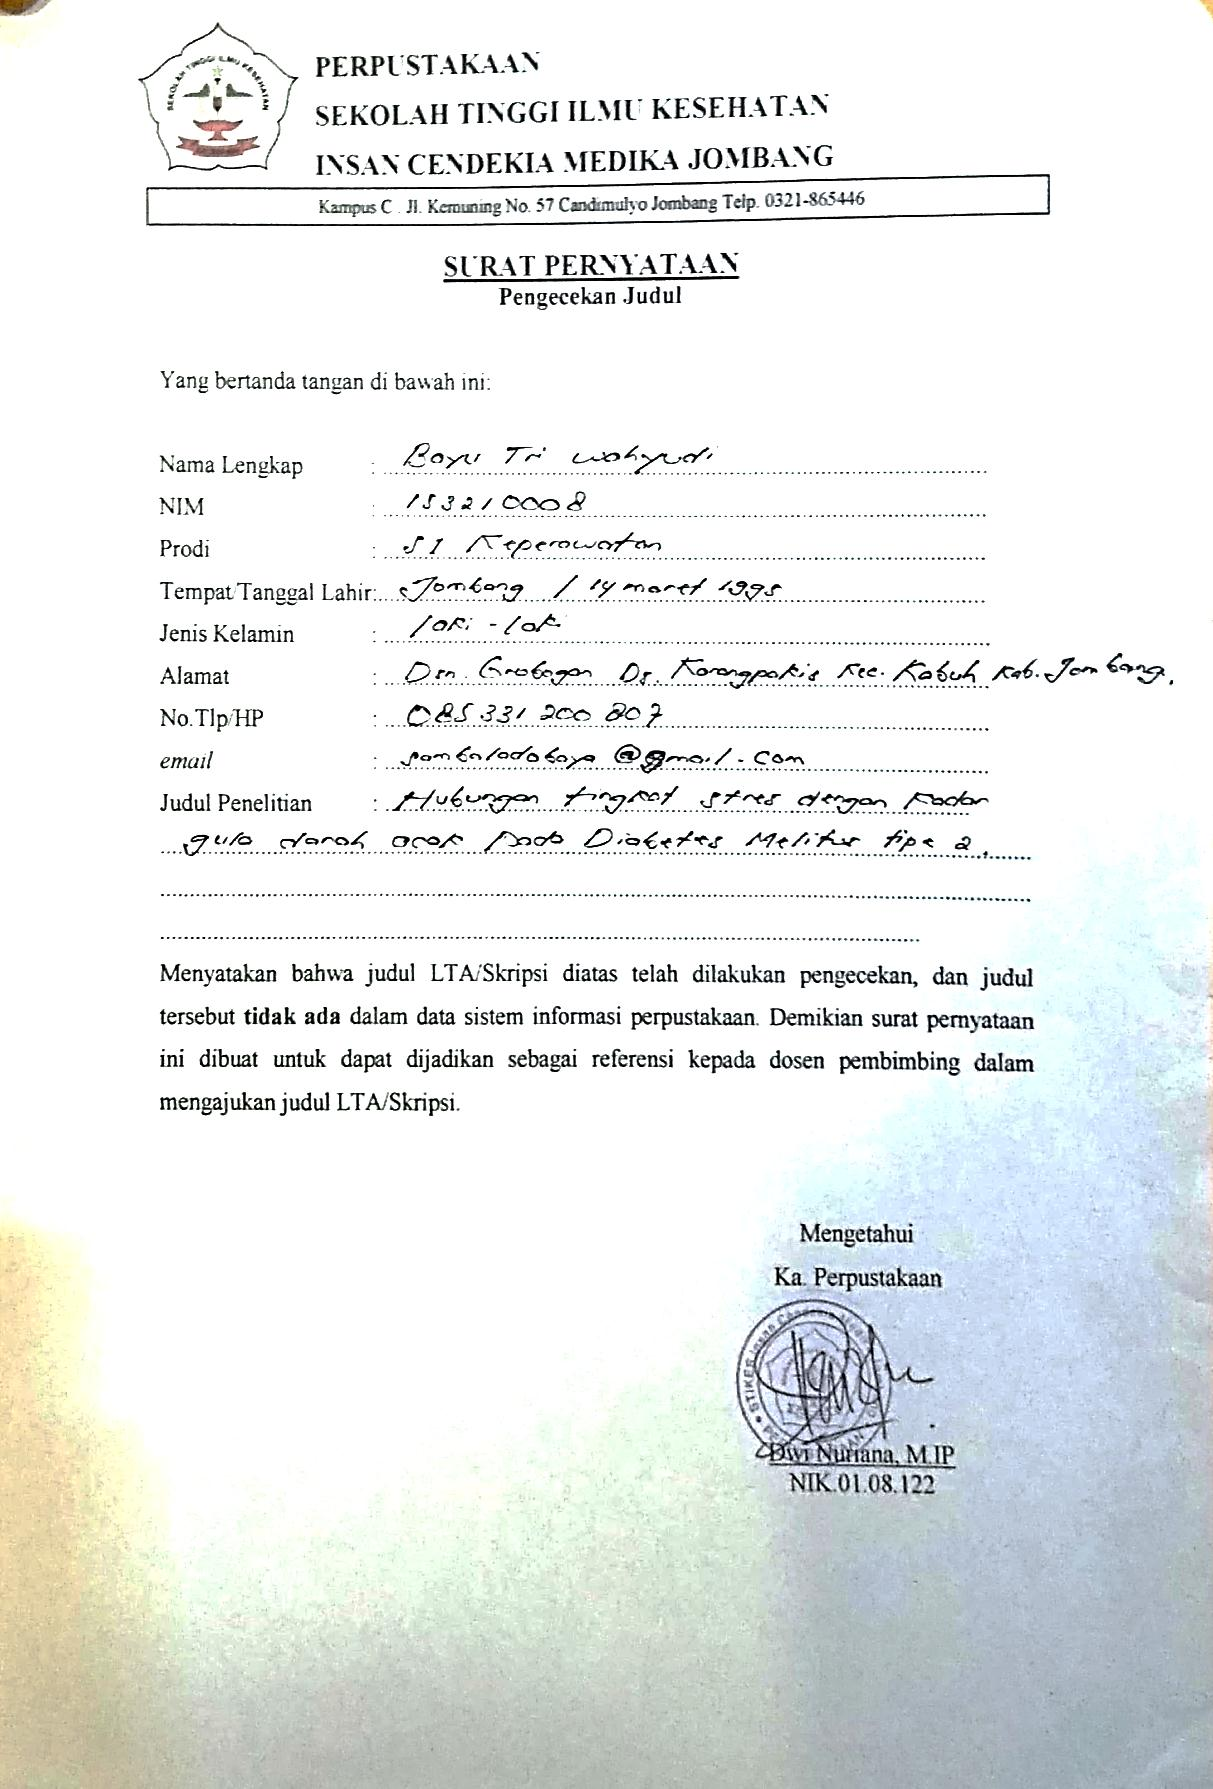 SEKOLAH TINGGI ILMU KESEHATAN
PERPUSTAKAAN
SEKOLAH TINGGI ILMU KESEHATAN
INSAN CENDEKIA MEDIKA JOMBANG
Kampus C . Jl. Kemuning No. 57 Candimulyo Jombang Telp. 0321-865446
SURAT PERNYATAAN
Pengecekan Judul
Yang bertanda tangan di bawah ini:
Nama Lengkap : Bayu Tri wahyudi
NIM : 153210008
Prodi : S1 Keperawatan
Tempat/Tanggal Lahir: Jombang / 14 maret 1995
Jenis Kelamin : laki - laki
Alamat : Dsn. Grobogan Ds. Karangpakis Kec. Kabuh Kab. Jombang.
No.Tlp/HP : 085 331 200 807
email : sambaladobayu@gmail.com
Judul Penelitian : Hubungan tingkat stres dengan kadar
gula darah acak pada Diabetes Melitus tipe 2.
Menyatakan bahwa judul LTA/Skripsi diatas telah dilakukan pengecekan, dan judul
tersebut tidak ada dalam data sistem informasi perpustakaan. Demikian surat pernyataan
ini dibuat untuk dapat dijadikan sebagai referensi kepada dosen pembimbing dalam
mengajukan judul LTA/Skripsi.
Mengetahui
Ka. Perpustakaan
Dwi Nuriana, M.IP
NIK.01.08.122